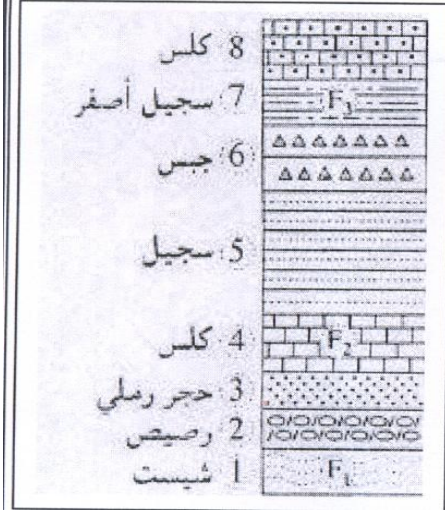 8 كلس
7 سجيل أصفر
F3
6 جبس
5 سجيل
4 كلس
F2
3 حجر رملي
2 رصيص
1 شيست
F1